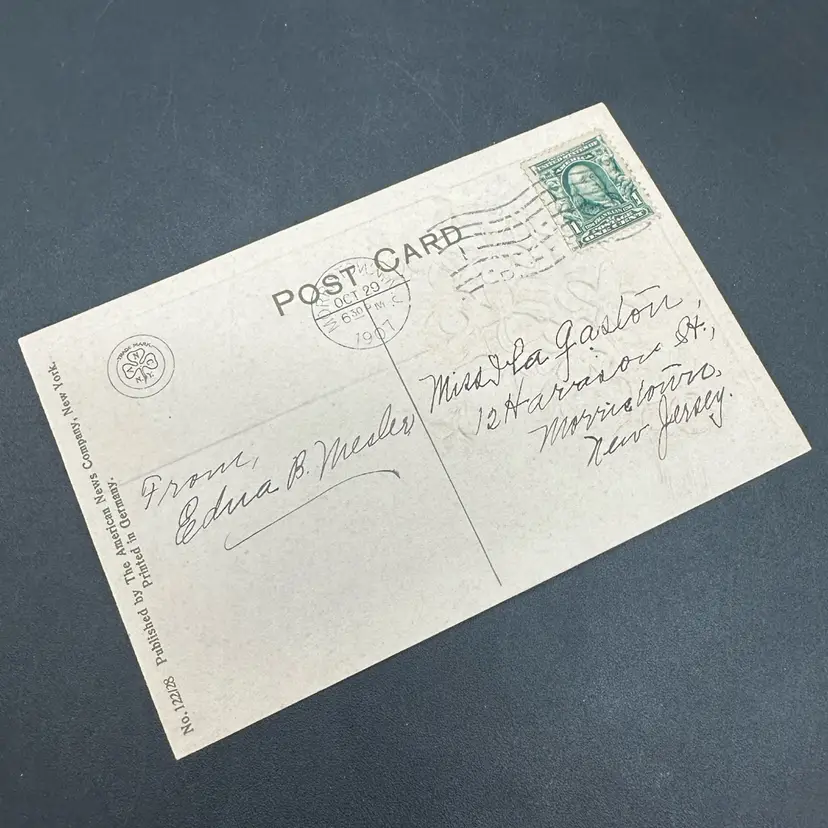 POST CARD
OCT 29
6 30 P M
1907
TRADE MARK
N.Y.
1
Miss Ila Gaston,
12 Harrison St.,
Morristown,
New Jersey.
From,
Edna B. Mesler
No. 122/28 Published by The American News Company, New York.
Printed in Germany.